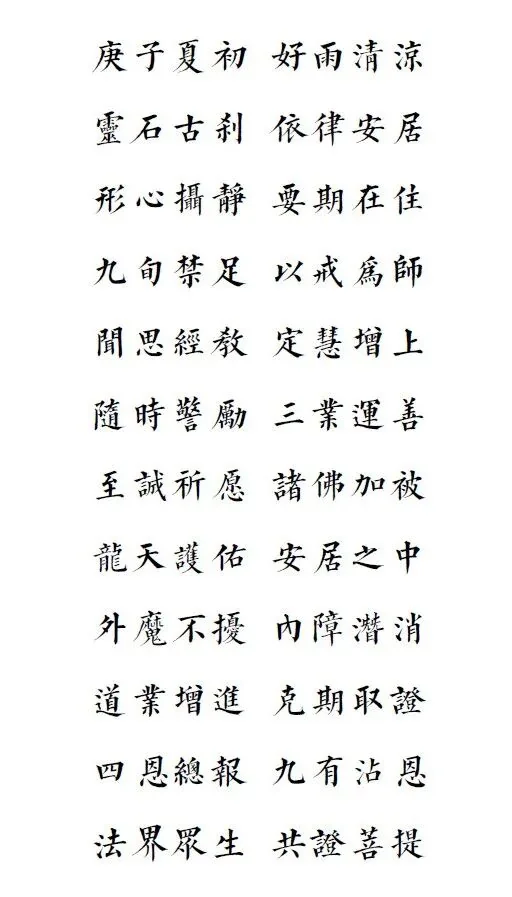 庚子夏初 好雨清涼
靈石古刹 依律安居
形心攝靜 要期在住
九旬禁足 以戒爲師
聞思經教 定慧增上
隨時警勵 三業運善
至誠祈愿 諸佛加被
龍天護佑 安居之中
外魔不擾 內障潛消
道業增進 克期取證
四恩總報 九有沾恩
法界眾生 共證菩提